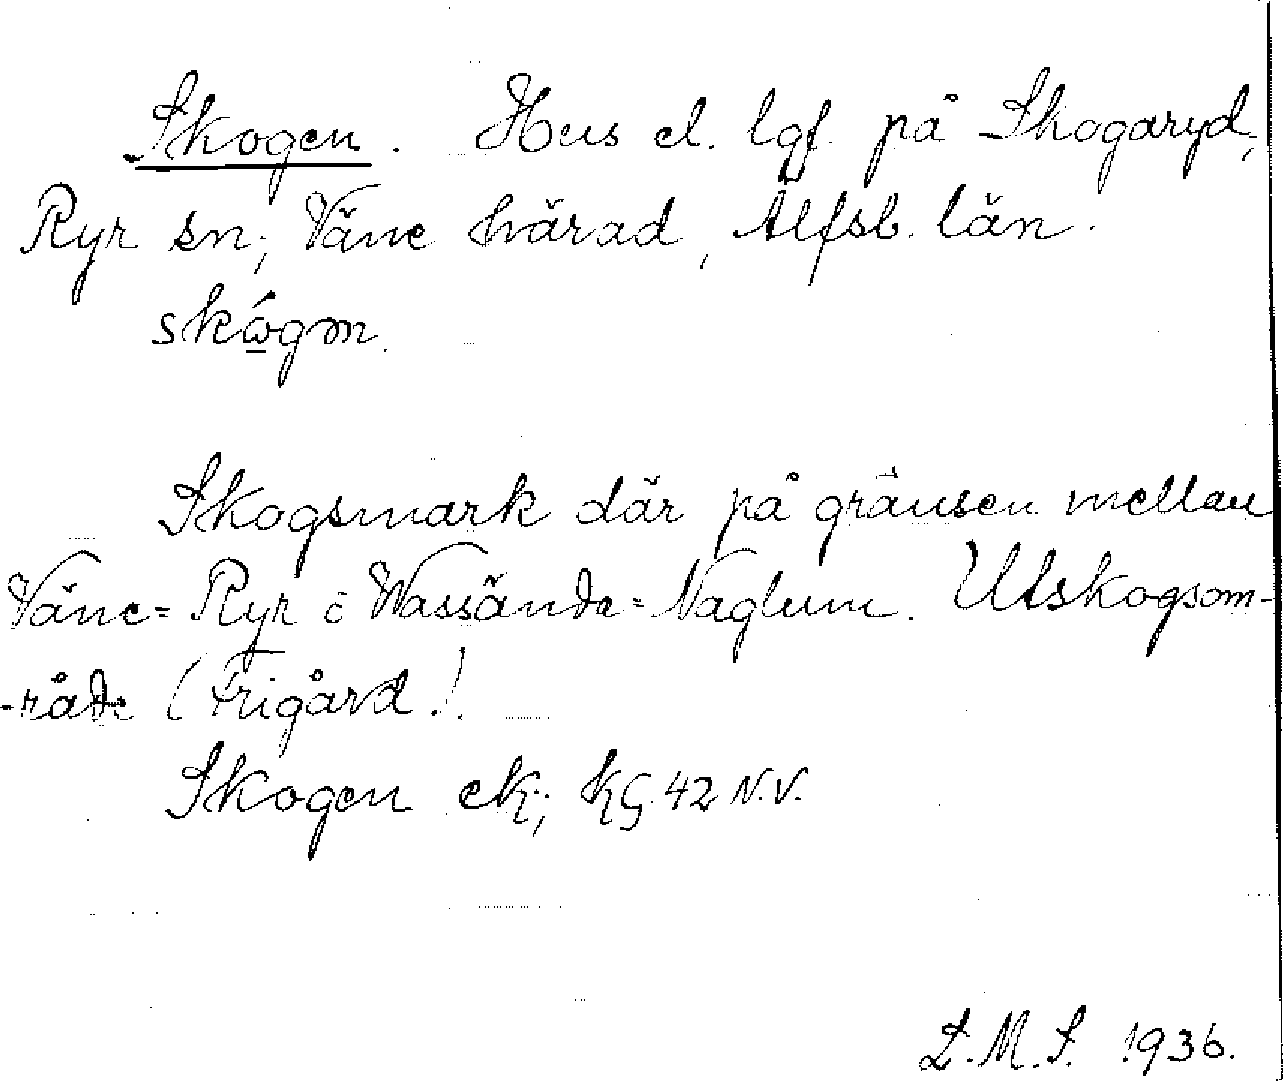 Skogen. Hus el. lgf. på Skogaryd,
Ryr sn; Väne härad, Älfsb. län.
skωgən.
Skogsmark där på gränsen mellan
Väne=Ryr o Wassända=Naglum. Utskogsom-
-råde (Frigård!).
Skogen ek; kG. 42 N.V.
L.M.S. 1936.